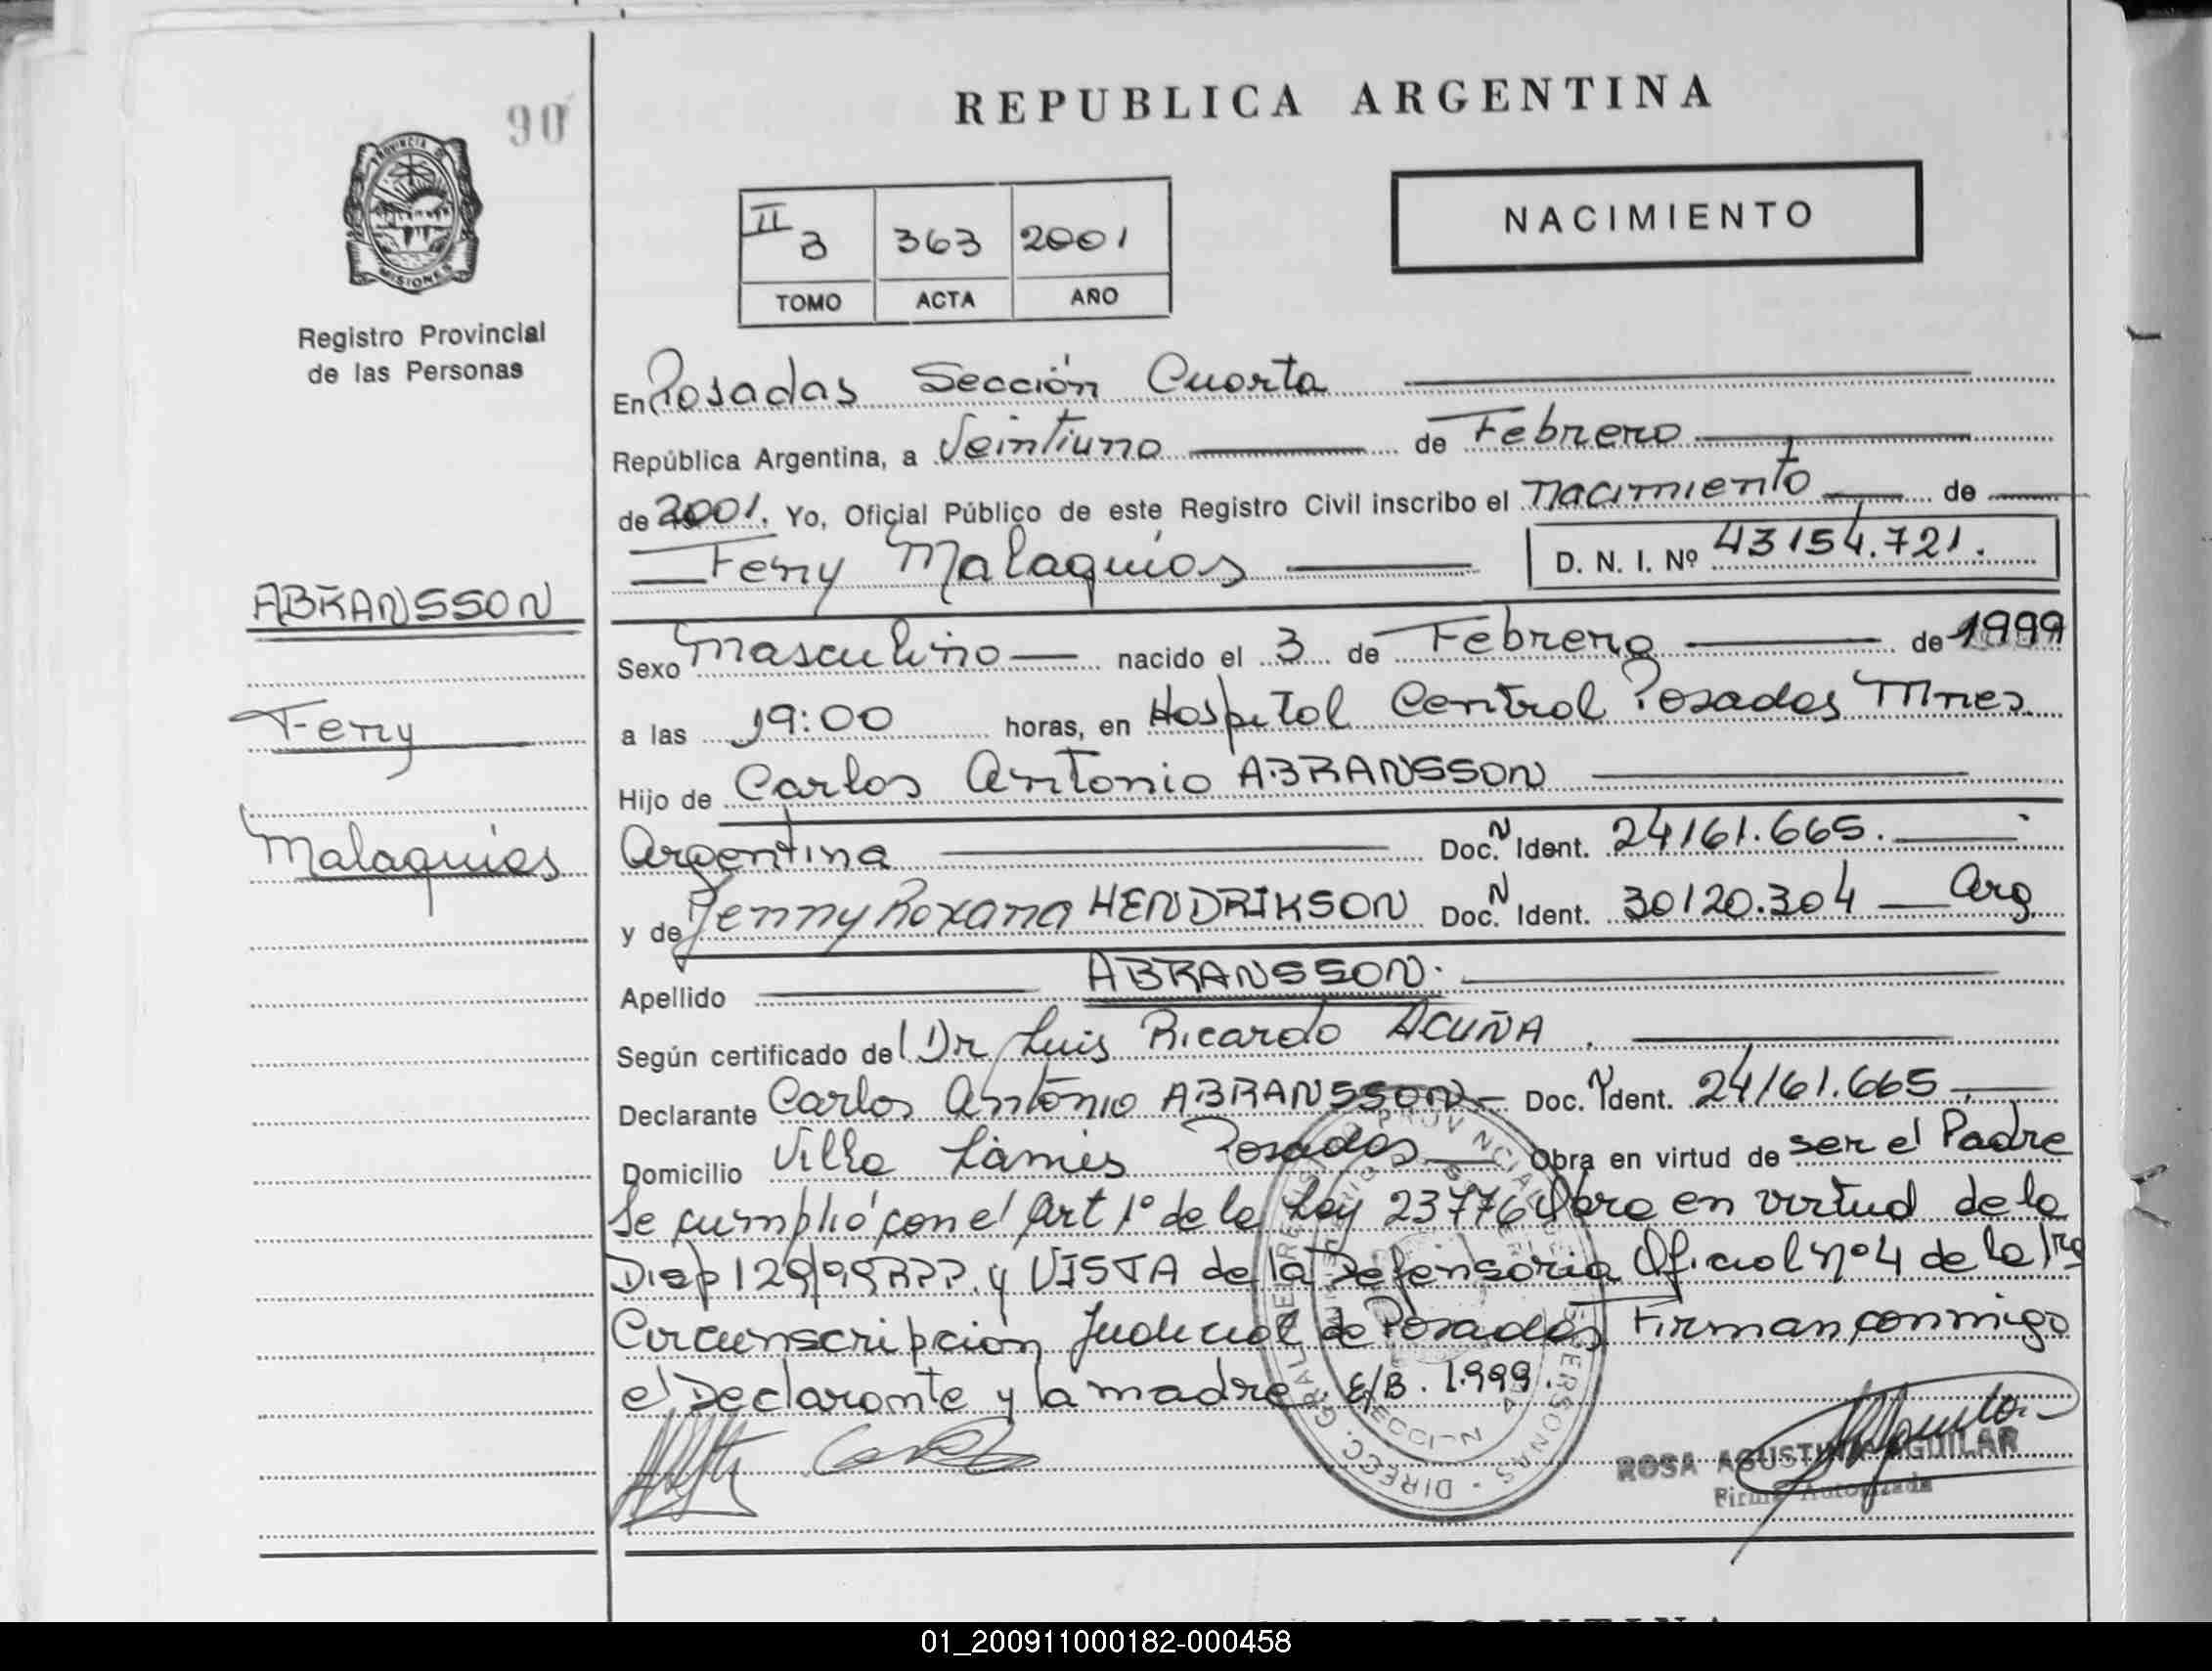 REPUBLICA ARGENTINA
90
PROVINCIA DE
MISIONES
Registro Provincial
de las Personas
NACIMIENTO
II 3 363 2001
TOMO ACTA AÑO
En Posadas Sección Cuarta
República Argentina, a Veintiuno de Febrero
de 2001. Yo, Oficial Público de este Registro Civil inscribo el nacimiento de
Ferry Malaquias D. N. I. Nº 43154.721.
ABRANSSON
Ferry
Malaquias
Sexo masculino nacido el 3 de Febrero de 1999
a las 19:00 horas, en Hospital Central Posadas Mnes.
Hijo de Carlos Antonio ABRANSSON
Argentina Doc. N Ident. 24161.665.
y de Jenny Roxana HENDRIKSON Doc. N Ident. 30120.304 Arg
Apellido ABRANSSON.
Según certificado del Dr Luis Ricardo ACUÑA.
Declarante Carlos Antonio ABRANSSON Doc. N Ident. 24161.665
Domicilio Villa Posadas Obra en virtud de ser el Padre
Se cumplió con el Art 1º de la Ley 23776 Obra en virtud de la
Disp 129/99 y VISTA de la Defensoria Oficial nº 4 de la 1ra
Circunscripción Judicial de Posadas Firman conmigo
el Declarante y la madre. E/B. 1.999.
ROSA AGUSTINA AGUILAR
Firma Autorizada
01_200911000182-000458